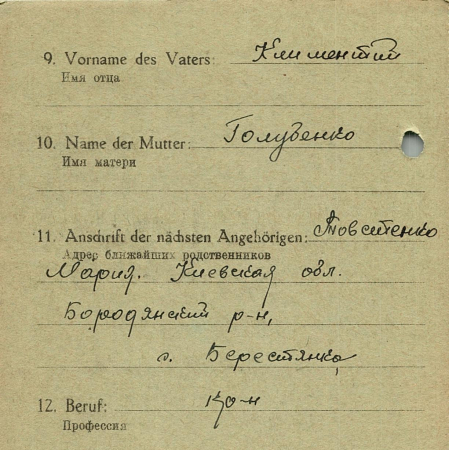 9. Vorname des Vaters: Климентий
Имя отца
10. Name der Mutter: Голубенко
Имя матери
11. Anschrift der nächsten Angehörigen: Товстенко
Адрес ближайших родственников
Мария. Киевская обл.
Бородянский р-н,
с. Берестянка,
12. Beruf:
Профессия